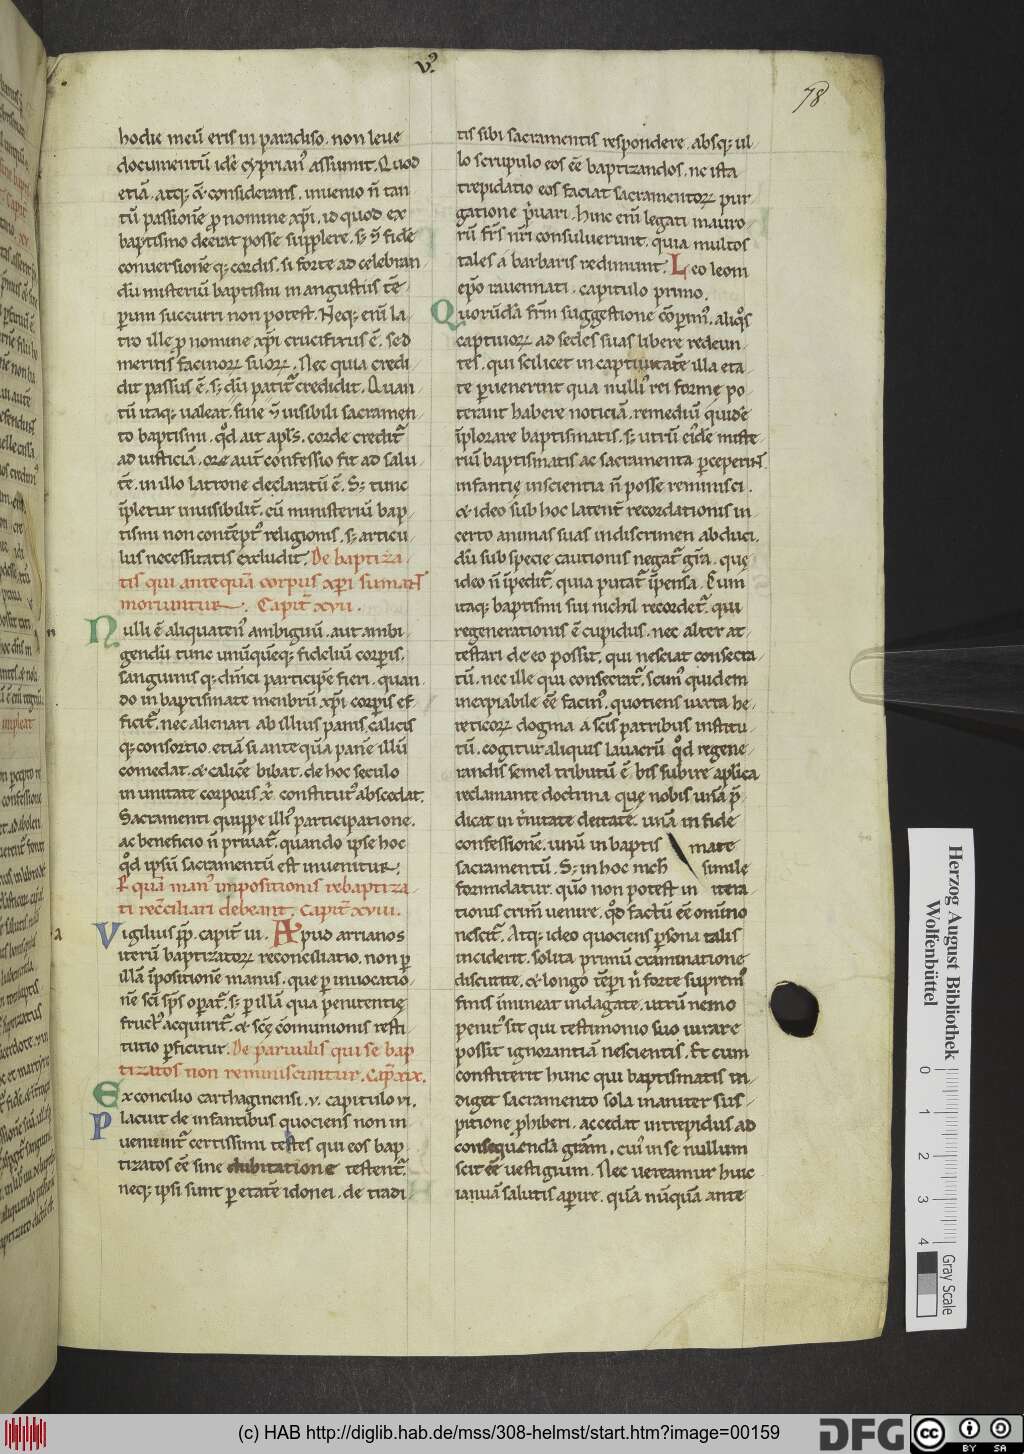 v.
78
hodie meū eris in paradiso. non leue
documentū idē cyprian' assumit. Quod
etiā. atq; &̄ considerans. inuenio n̄ tan
tū passionē pro nomine xp̄i. id quod ex
baptismo deerat posse supplere. s; & fidē
conuersionē q; cordis. si forte ad celebran
dū misteriū baptismi in angustiis tē
porum succurri non potest. Neq; enī la
tro ille pro nomine xp̄i crucifixus ē. sed
meritis facinorꝝ suorꝝ. Nec quia credi
dit passus ē. s; dū patit̄ credidit. Quan
tū itaq; ualeat. sine & uisibili sacramen
to baptismi. qd̄ ait apl̄s. corde credit̄
ad iusticiā. ore aut̄ confessio fit ad salu
tē. in illo latrone declaratū ē. S; tunc
īpletur inuisibilit̄. cū ministeriū bap
tismi non contēpt' religionis. s; articu
lus necessitatis excludit. De baptiza
tis qui antequā corpus xp̄i sumant
moriuntur. Capit̄ xvii.
Nulli ē aliquaten' ambiguū. aut ambi
gendū tunc unūquēq; fideliū corporis.
sanguinis q; dn̄ici participē fieri. quan
do in baptismate membrū xp̄i corporis ef
ficit̄. nec alienari ab illius panis. calicis
q; consortio. etiā si antequā panē illū
comedat. & calicē bibat. de hoc seculo
in unitate corporis xp̄i constitut' abscedat.
Sacramenti quippe illi' participatione.
ac beneficio n̄ priuat̄. quando ipse hoc
qd̄ ipsū sacramentū est inuenitur.
P quā man' impositionis rebaptiza
ti recc̄iliari debeant. Capit̄ xviii.
Vigilius pp̄. capit̄ iii. Apud arrianos
iterū baptizatorꝝ reconciliatio. non p̄
illā īpositionē manus. que p̄ inuocatio
nē sc̄i sp̄s operat̄. s; p̄ illā qua penitentię
fruct' acquirit̄. & scē cōmunionis resti
tutio p̄ficitur. De paruulis qui se bap
tizatos non reminiscuntur. Cap̄ xix.
Ex concilio carthaginensi. v. capitulo vi.
Placuit de infantibus quociens non in
ueniunt̄ certissimi testes qui eos bap
tizatos eē sine dubitatione testent̄.
neq; ipsi sunt p̄ etatē idonei. de tradi
tis sibi sacramentis respondere. absq; ul
lo scrupulo eos eē baptizandos. ne ista
trepidatio eos faciat sacramentorꝝ pur
gatione p̄uari. hinc enī legati mauro
rū frs̄ nr̄i consuluerunt. quia multos
tales a barbaris redimunt. Leo leoni
epō rauennati. capitulo primo.
Quorundā frm̄ suggestione cōperim'. aliqos
captiuorꝝ ad sedes suas libere redeun
tes. qui scilicet in captiuitatē illa eta
te p̄uenerint qua nulli' rei formę po
terant habere noticiā. remediū quidē
īplorare baptismatis. s; utrū ei'dē miste
riū baptismatis ac sacramenta p̄ceperint
infantię inscientia n̄ posse reminisci.
& ideo sub hoc latent̄ recordationis in
certo animas suas in discrimen abduci.
dū sub specie cautionis negat̄ grā. quę
ideo n̄ īpedit̄. quia putat̄ īpensa. Cum
itaq; baptismi sui nichil recordet̄. qui
regenerationis ē cupidus. nec alter at
testari de eo possit. qui nesciat consecra
tū. nec ille qui consecrat̄. scim' quidem
inexpiabile eē facin'. quotiens iuxta he
reticorꝝ dogma a sc̄is patribus institu
tū. cogitur aliquis lauacrū qd̄ regene
randis semel tributū ē. bis subire aplica
reclamante doctrina quę nobis unā p̄
dicat in trinitate deitatē. unā in fide
confessionē. unū in baptis mate
sacramentū. S; in hoc nich simile
formidatur. quō non potest in itera
tionis crim̄ uenire. qd̄ factū eē omnino
nescit̄. Atq; ideo quociens p̄sona talis
inciderit. solita primū examinatione
discutite. & longo tēp̄e n̄ forte suprem'
finis īmineat indagate. utrū nemo
penit' sit qui testimonio suo iurare
possit ignorantiā nescientis. Et cum
constiterit hunc qui baptismatis in
diget sacramento sola inaniter sus
pitione p̄hiberi. accedat intrepidus ad
consequendā grām. cui' in se nullum
scit eē uestigium. Nec uereamur huic
ianuā salutis aperire. quā nūquā ante
Herzog August Bibliothek
Wolfenbüttel
0 1 2 3 4
Gray Scale
(c) HAB http://diglib.hab.de/mss/308-helmst/start.htm?image=00159
DFG
CC BY SA